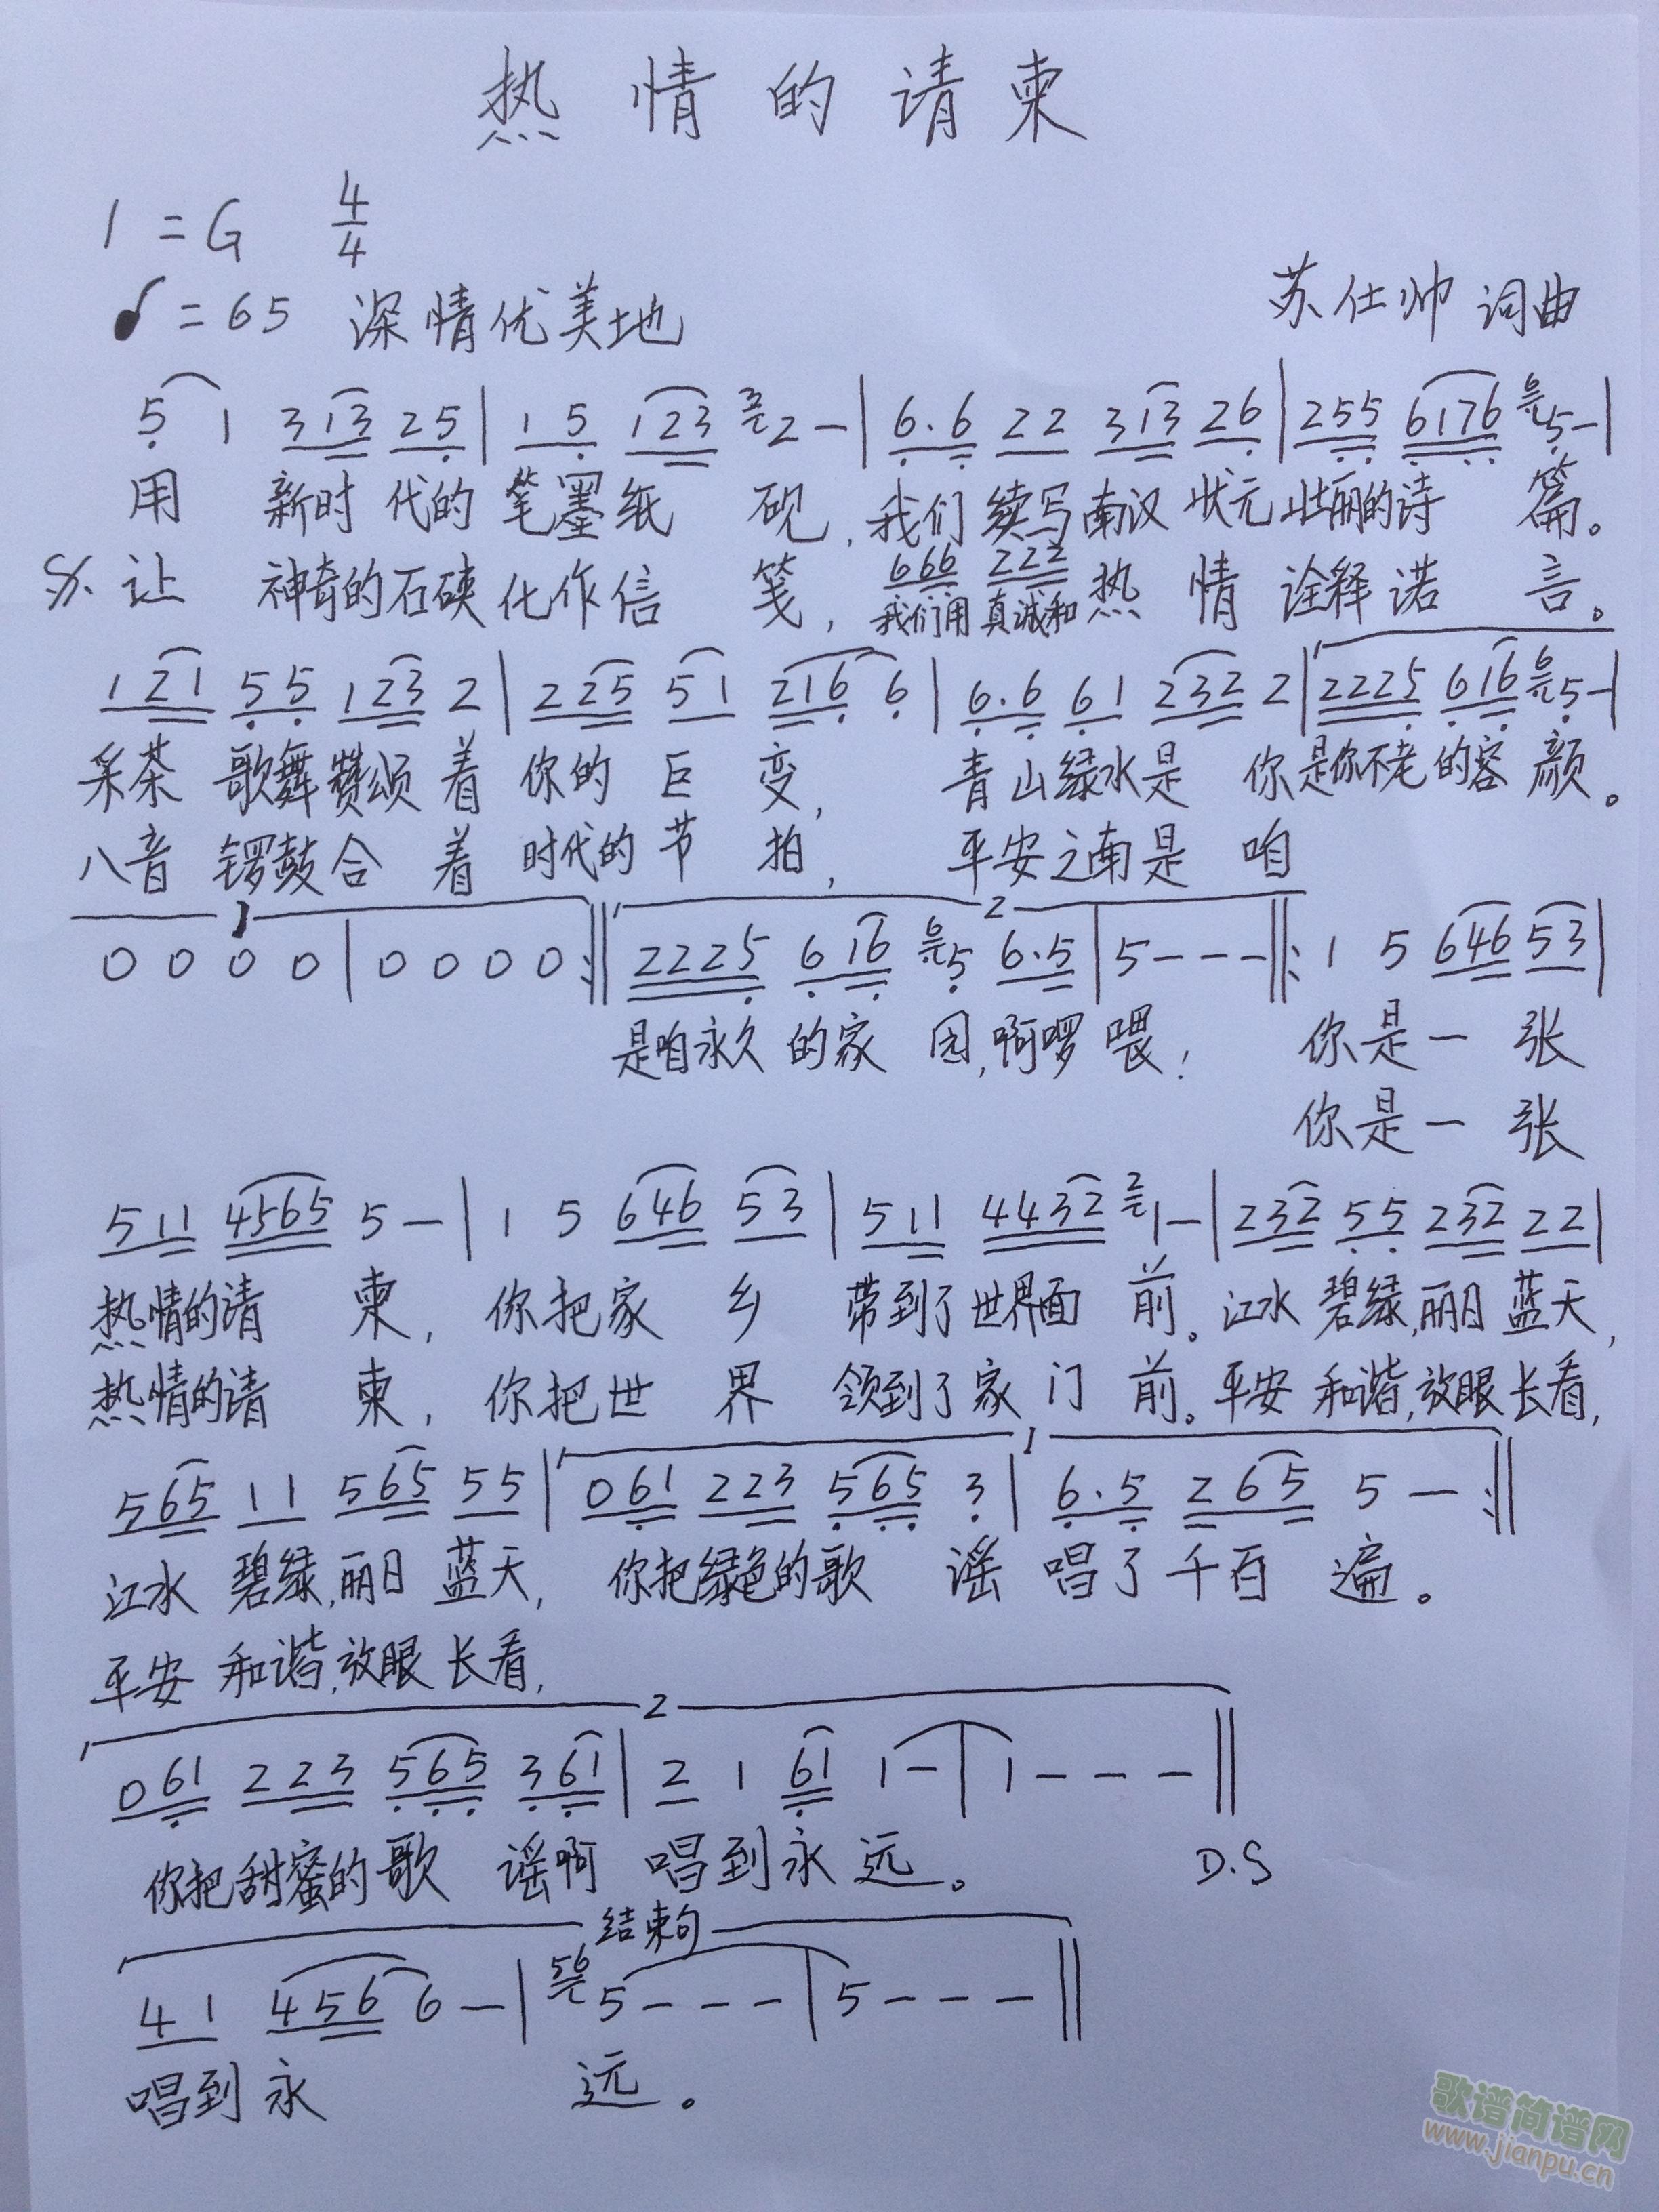 热情的请柬
1=G 4/4
♩=65 深情优美地
苏仕帅 词曲
5 1 313 25 | 1 5 123 3 2 — | 6.6 22 313 26 | 255 6176 6 5 — |
用 新时代的笔墨纸砚,我们续写南汉状元壮丽的诗篇。
666 222
让 神奇的石硖化作信笺,我们用真诚和热情诠释诺言。
121 55 123 2 | 225 51 216 6 | 6.6 61 232 2 | 2225 616 6 5 — |
采茶歌舞赞颂着你的巨变, 青山绿水是你是你不老的容颜。
八音锣鼓合着时代的节拍, 平安之南是咱
1 2
0 0 0 0 | 0 0 0 0 :‖ 2225 616 6 5 6.5 | 5 — — — ‖: 1 5 646 53 |
是咱永久的家园,啊啰喂! 你是一张
你是一张
511 4565 5 — | 1 5 646 53 | 511 4432 2 1 — | 232 55 232 22 |
热情的请柬, 你把家乡带到了世界面前。江水碧绿,丽日蓝天,
热情的请柬, 你把世界领到了家门前。平安和谐,放眼长看,
1
565 11 565 55 | 061 223 565 3 | 6.5 265 5 — :‖
江水碧绿,丽日蓝天, 你把绿色的歌谣唱了千百遍。
平安和谐,放眼长看,
2
061 223 565 361 | 2 1 61 1 — | 1 — — — ‖
你把甜蜜的歌谣啊 唱到永远。 D.S
结束句
41 456 6 — | 56 5 — — — | 5 — — — ‖
唱到永远。
歌谱简谱网
www.jianpu.cn